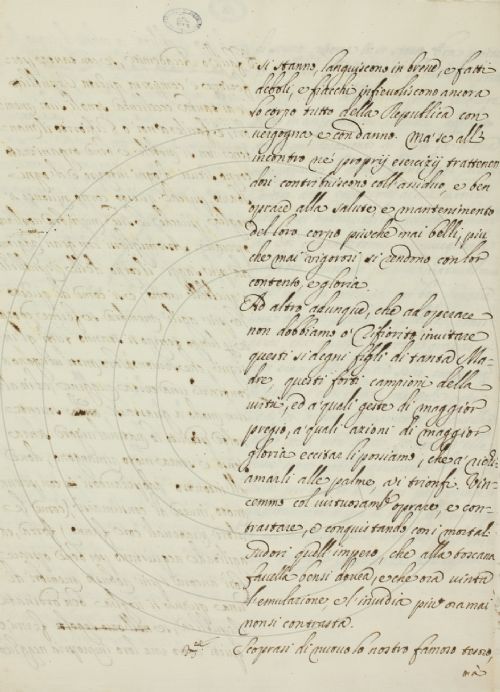 si stanno, languiscono in breve, e fatti
deboli, e fiacchi infievoliscono ancora
lo corpo tutto della Republica con
vergogna e con danno. Ma' se all'
incontro ne' proprij esercizij trattenen
dosi contribuiscono coll'assiduo, e ben
oprare alla salute, e mantenimento
del loro corpo piùche mai belli, più
che mai vigorosi si rendono con lor
contento, e gloria.
Ad altro adunque, che ad operare
non dobbiamo ò Rifiorito invitare
questi sì degni figli di tanta Ma-
dre, questi forti campioni della
virtù, ed a quali geste di maggior
pregio, a quali azioni di maggior
gloria eccitar li possiamo, che a'
alle palme, ai trionfi. Vin-
cemmo col virtuosam.e oprare, e con-
trastare, e conquistando con i mortal
sudori quell'impero, che alla toscana
favella bensì dovea, e che ora vinta
l'emulazione e l'invidia più oramai
non si contrasta.
Scoprasi di nuovo lo nostro famoso tesoro,
mà